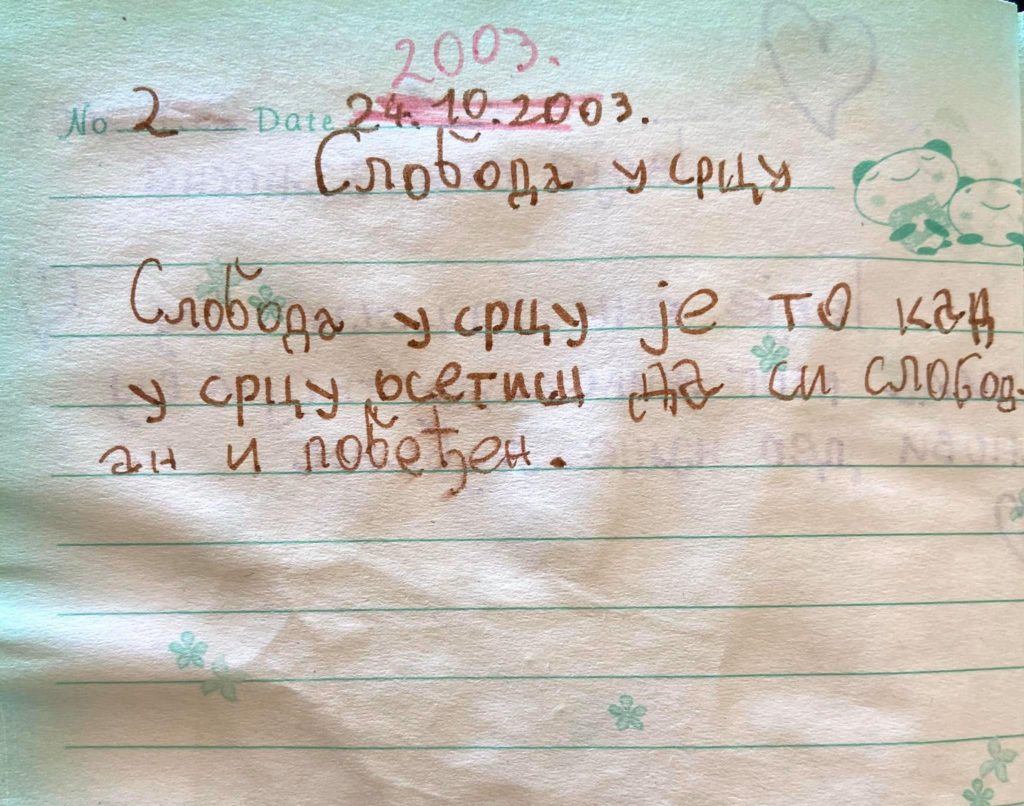 2003.
No 2 Date 24.10.2003.
Слобода у срцу
Слобода у срцу је то кад
у срцу осетиш да си слобод-
ан и побеђен.